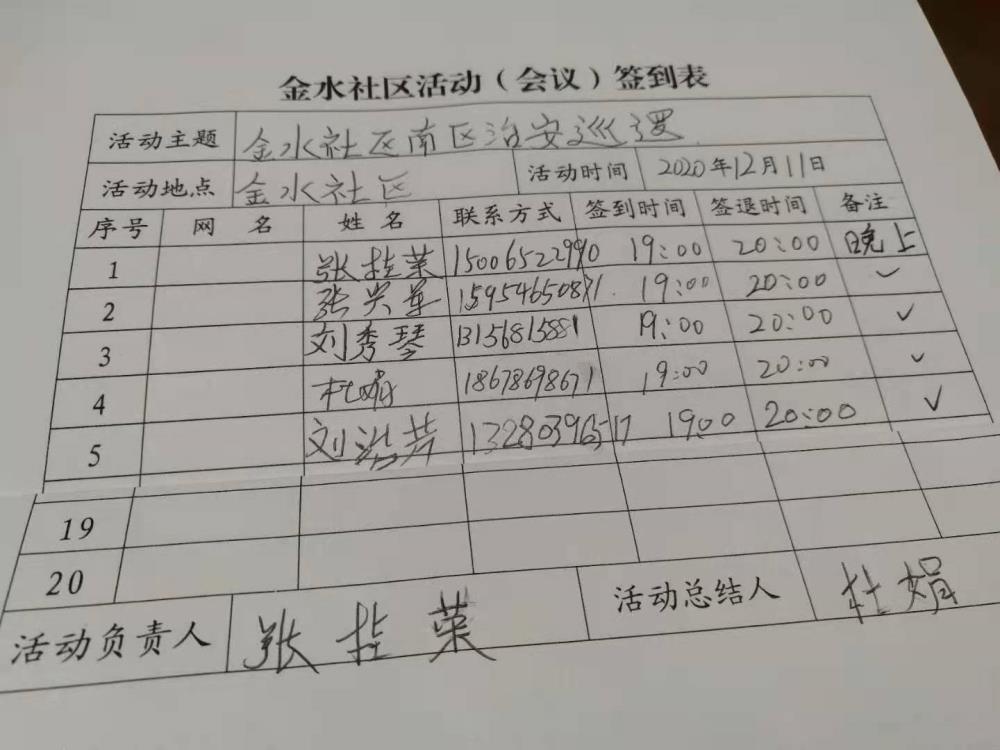 金水社区活动（会议）签到表
活动主题 金水社区南区治安巡逻
活动地点 金水社区 活动时间 2020年12月11日
序号 网 名 姓 名 联系方式 签到时间 签退时间 备注
1 张桂荣 15006522990 19:00 20:00 晚上
2 张兴军 15954650871 19:00 20:00 ✓
3 刘秀琴 13156815881 19:00 20:00 ✓
4 杜娟 18678698671 19:00 20:00 ✓
5 刘洪芹 19:00 20:00 ✓
19
20
活动负责人 张桂荣 活动总结人 杜娟